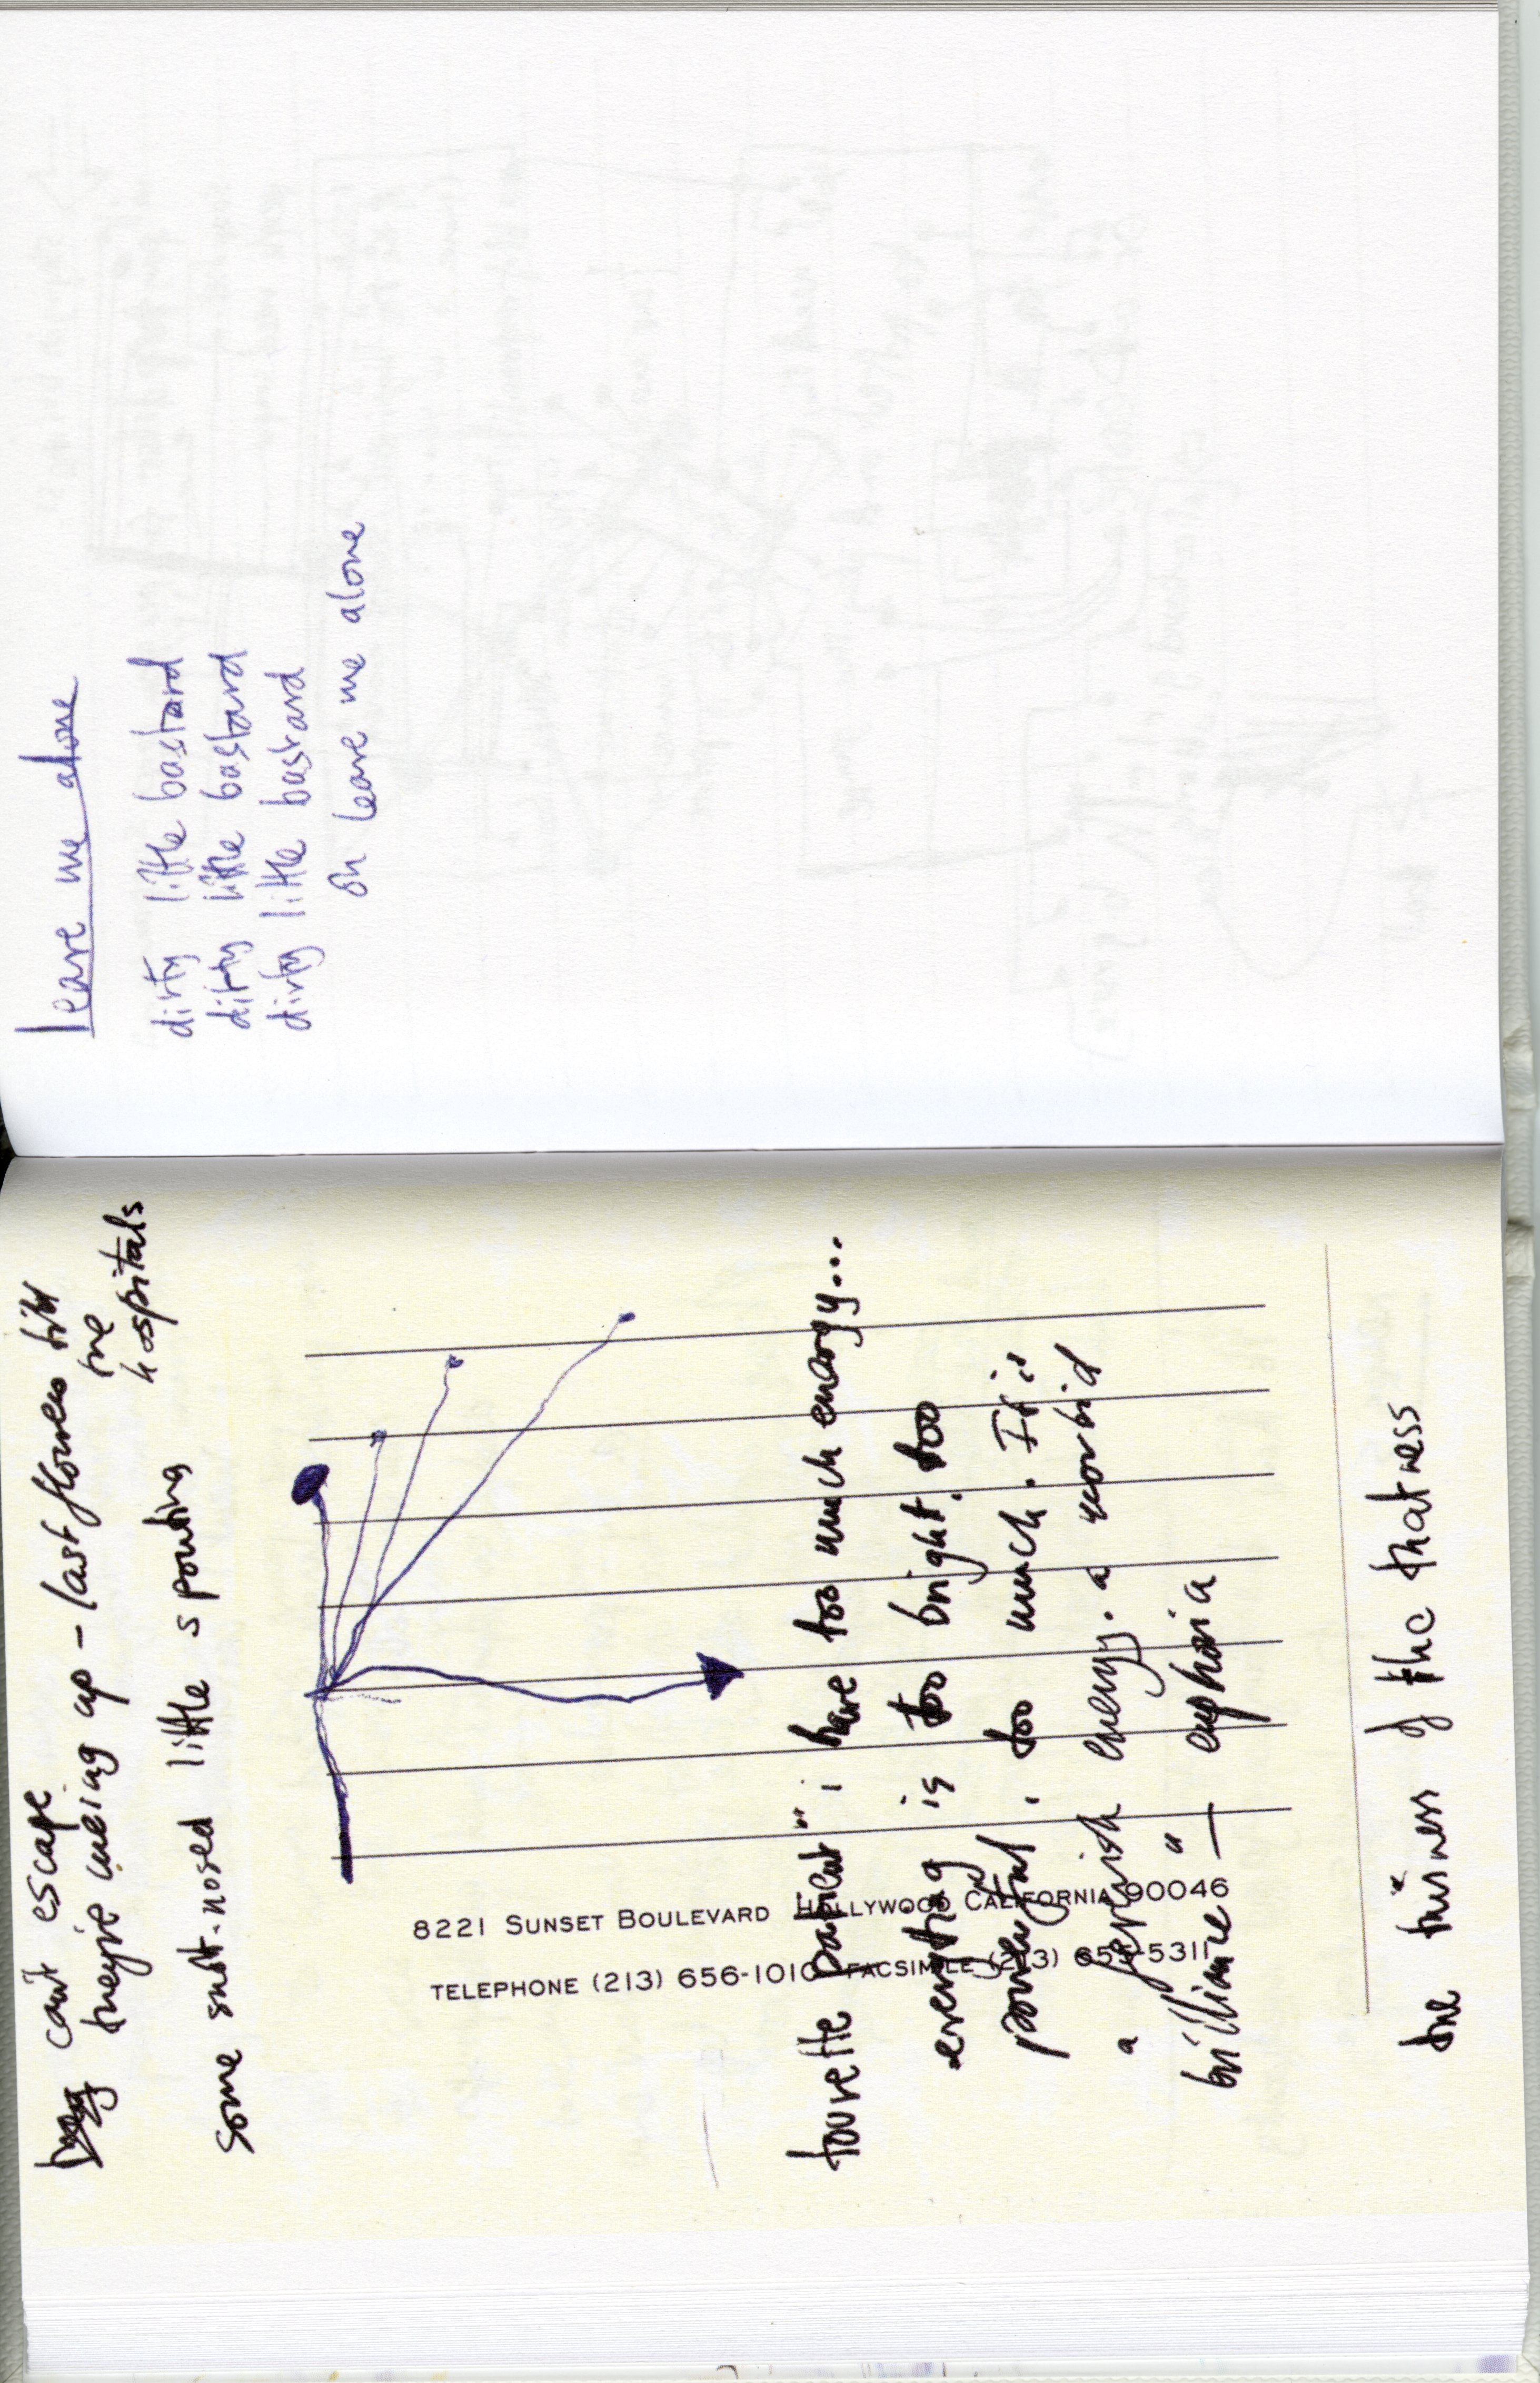 can't escape
they're queing up - last flowers till
the
hospitals
some snot-nosed little spouting
8221 SUNSET BOULEVARD HOLLYWOOD CALIFORNIA 90046
TELEPHONE (213) 656-1010 FACSIMILE (213) 65 -5311
tourette patient " i have too much energy...
everything is too bright. too
powerful, too much. It is
a feverish energy. a morbid
brilliance" — euphoria
the thisness of the thatness
leave me alone
dirty little bastard
dirty little bastard
dirty little bastard
oh leave me alone